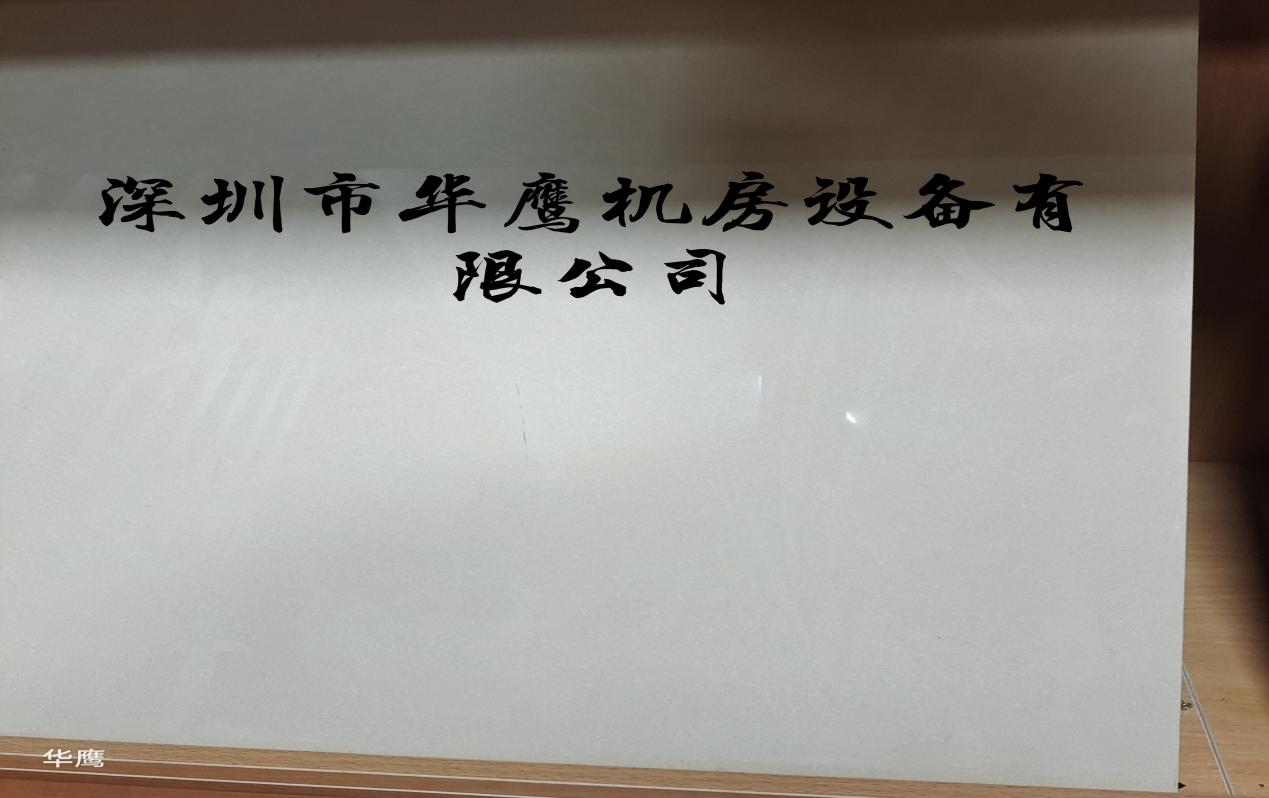 深圳市华鹰机房设备有
限公司
华鹰